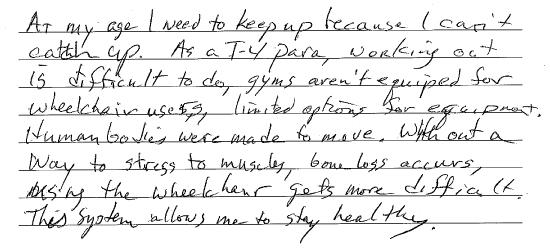 At my age I need to keep up because I can't
catch up. As a T-4 para, working out
is difficult to do, gyms aren't equiped for
wheelchair users, limited options for equipment.
Human bodies were made to move. Without a
way to stress to muscles, bone loss accurs,
using the wheelchair gets more difficult.
This system allows me to stay healthy.